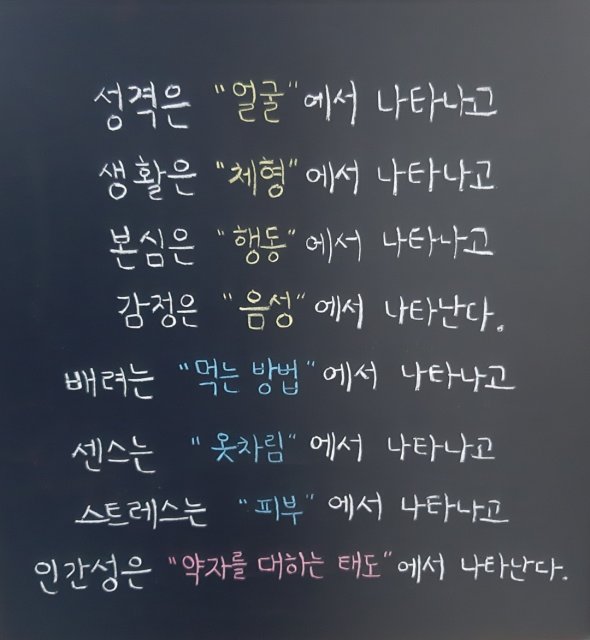 성격은 "얼굴"에서 나타나고
생활은 "체형"에서 나타나고
본심은 "행동"에서 나타나고
감정은 "음성"에서 나타난다.
배려는 "먹는 방법"에서 나타나고
센스는 "옷차림"에서 나타나고
스트레스는 "피부"에서 나타나고
인간성은 "약자를 대하는 태도"에서 나타난다.